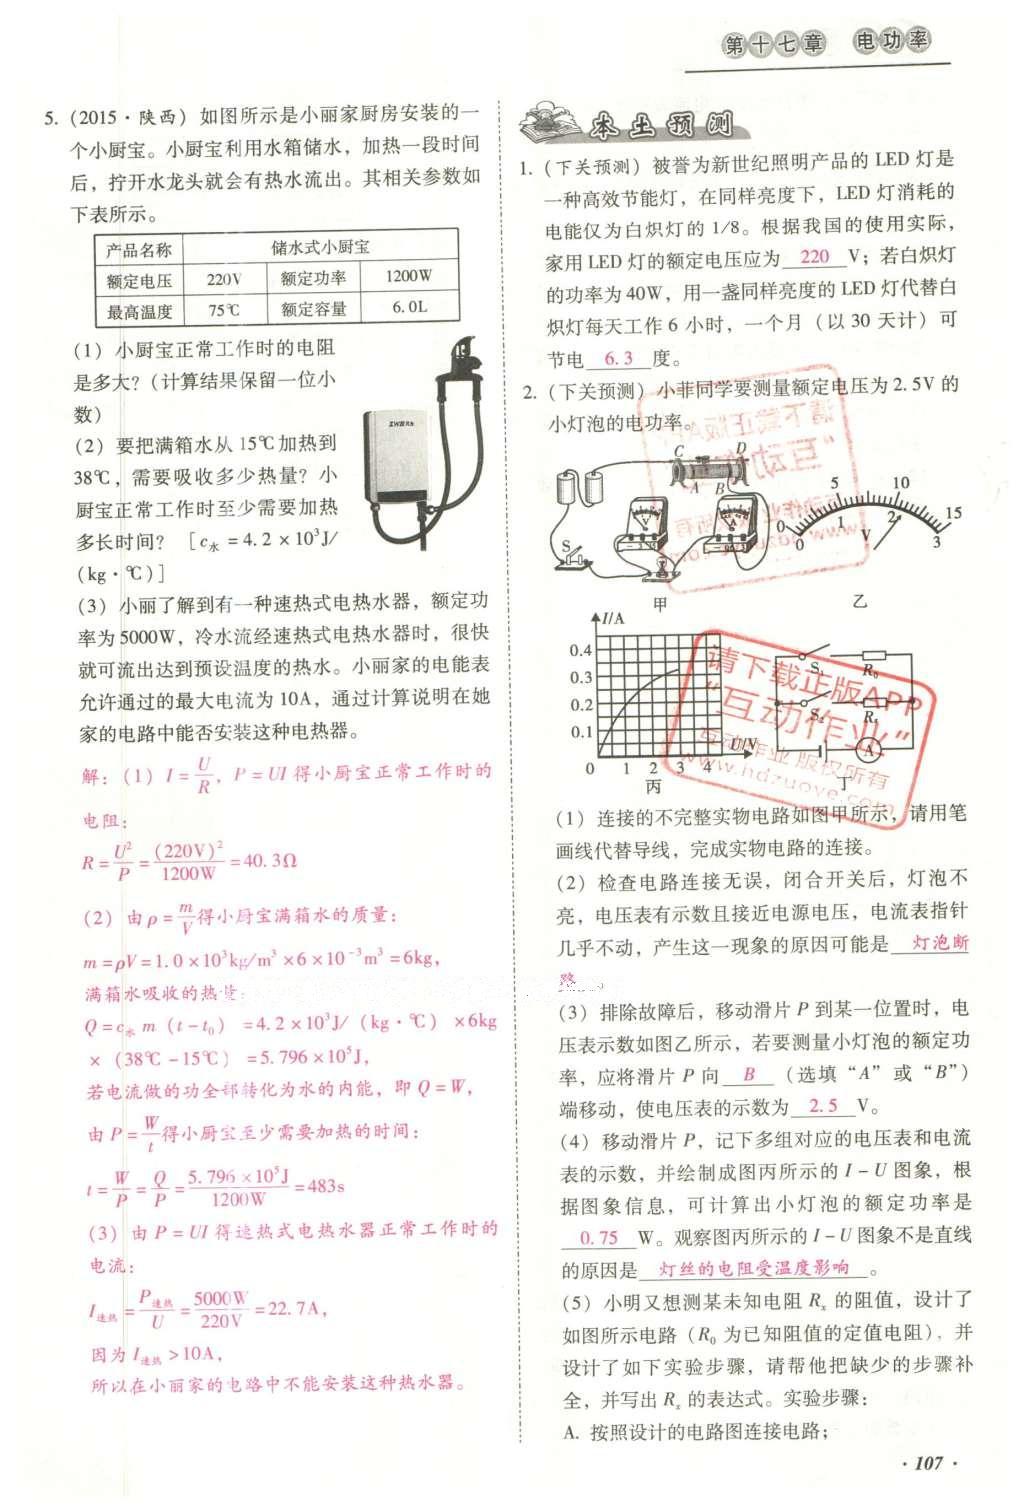 第十七章 电功率
5. (2015·陕西) 如图所示是小丽家厨房安装的一
个小厨宝。小厨宝利用水箱储水，加热一段时间
后，拧开水龙头就会有热水流出。其相关参数如
下表所示。
产品名称 储水式小厨宝
额定电压 220V 额定功率 1200W
最高温度 75℃ 额定容量 6.0L
(1) 小厨宝正常工作时的电阻
是多大? (计算结果保留一位小
数)
(2) 要把满箱水从 15℃加热到
38℃，需要吸收多少热量? 小
厨宝正常工作时至少需要加热
多长时间? [c水 = 4.2 × 10³J/
(kg·℃)]
(3) 小丽了解到有一种速热式电热水器，额定功
率为 5000W，冷水流经速热式电热水器时，很快
就可流出达到预设温度的热水。小丽家的电能表
允许通过的最大电流为 10A，通过计算说明在她
家的电路中能否安装这种电热器。
解: (1) I = U/R，P = UI 得小厨宝正常工作时的
电阻:
R = U²/P = (220V)²/1200W = 40.3Ω
(2) 由 ρ = m/V 得小厨宝满箱水的质量:
m = ρV = 1.0 × 10³kg/m³ × 6 × 10⁻³m³ = 6kg，
满箱水吸收的热量:
Q = c水 m (t - t₀) = 4.2 × 10³J/ (kg·℃) × 6kg
× (38℃ - 15℃) = 5.796 × 10⁵J，
若电流做的功全部转化为水的内能，即 Q = W，
由 P = W/t 得小厨宝至少需要加热的时间:
t = W/P = Q/P = 5.796 × 10⁵J/1200W = 483s
(3) 由 P = UI 得速热式电热水器正常工作时的
电流:
I速热 = P速热/U = 5000W/220V = 22.7A，
因为 I速热 > 10A，
所以在小丽家的电路中不能安装这种热水器。
本土预测
1. (下关预测) 被誉为新世纪照明产品的 LED 灯是
一种高效节能灯，在同样亮度下，LED 灯消耗的
电能仅为白炽灯的 1/8。根据我国的使用实际，
家用 LED 灯的额定电压应为 220 V；若白炽灯
的功率为 40W，用一盏同样亮度的 LED 灯代替白
炽灯每天工作 6 小时，一个月 (以 30 天计) 可
节电 6.3 度。
2. (下关预测) 小菲同学要测量额定电压为 2.5V 的
小灯泡的电功率。
C D
A B
V
A
S
甲
0 5 10 15
0 1 2 3
V
乙
I/A
0.4
0.3
0.2
0.1
0 1 2 3 4 U/V
丙
S₁ R₀
S₂ Rₓ
A
丁
请下载正版APP
“互动作业”
互动作业 版权所有
www.hdzuoye.com
(1) 连接的不完整实物电路如图甲所示，请用笔
画线代替导线，完成实物电路的连接。
(2) 检查电路连接无误，闭合开关后，灯泡不
亮，电压表有示数且接近电源电压，电流表指针
几乎不动，产生这一现象的原因可能是 灯泡断
路 。
(3) 排除故障后，移动滑片 P 到某一位置时，电
压表示数如图乙所示，若要测量小灯泡的额定功
率，应将滑片 P 向 B (选填“A”或“B”)
端移动，使电压表的示数为 2.5 V。
(4) 移动滑片 P，记下多组对应的电压表和电流
表的示数，并绘制成图丙所示的 I - U 图象，根
据图象信息，可计算出小灯泡的额定功率是
0.75 W。观察图丙所示的 I - U 图象不是直线
的原因是 灯丝的电阻受温度影响 。
(5) 小明又想测某未知电阻 Rₓ 的阻值，设计了
如图所示电路 (R₀ 为已知阻值的定值电阻)，并
设计了如下实验步骤，请帮他把缺少的步骤补
全，并写出 Rₓ 的表达式。实验步骤:
A. 按照设计的电路图连接电路；
· 107 ·